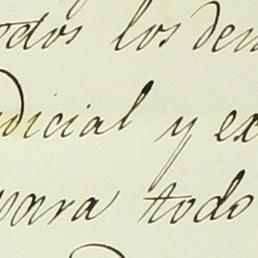 odos los dem
dicial y ex
para todo